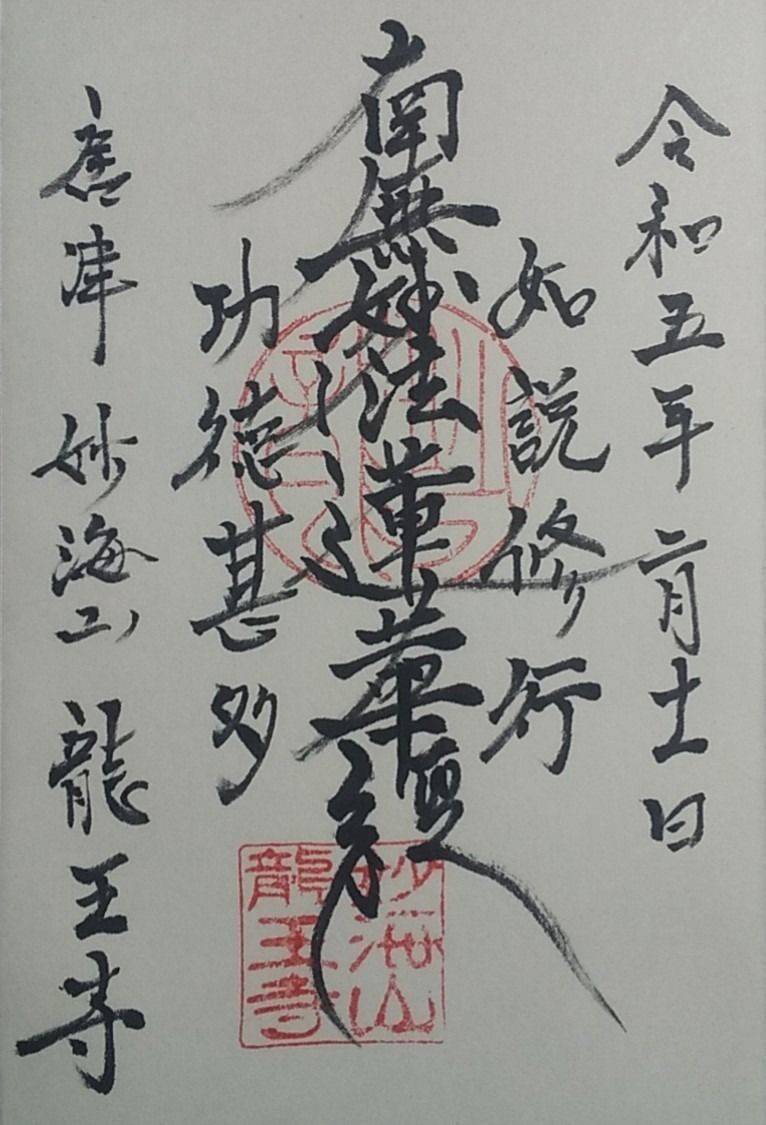 令和五年二月十一日
如説修行
南無妙法蓮華經
功徳甚多
唐津 妙海山 龍王寺
妙海山
龍王寺